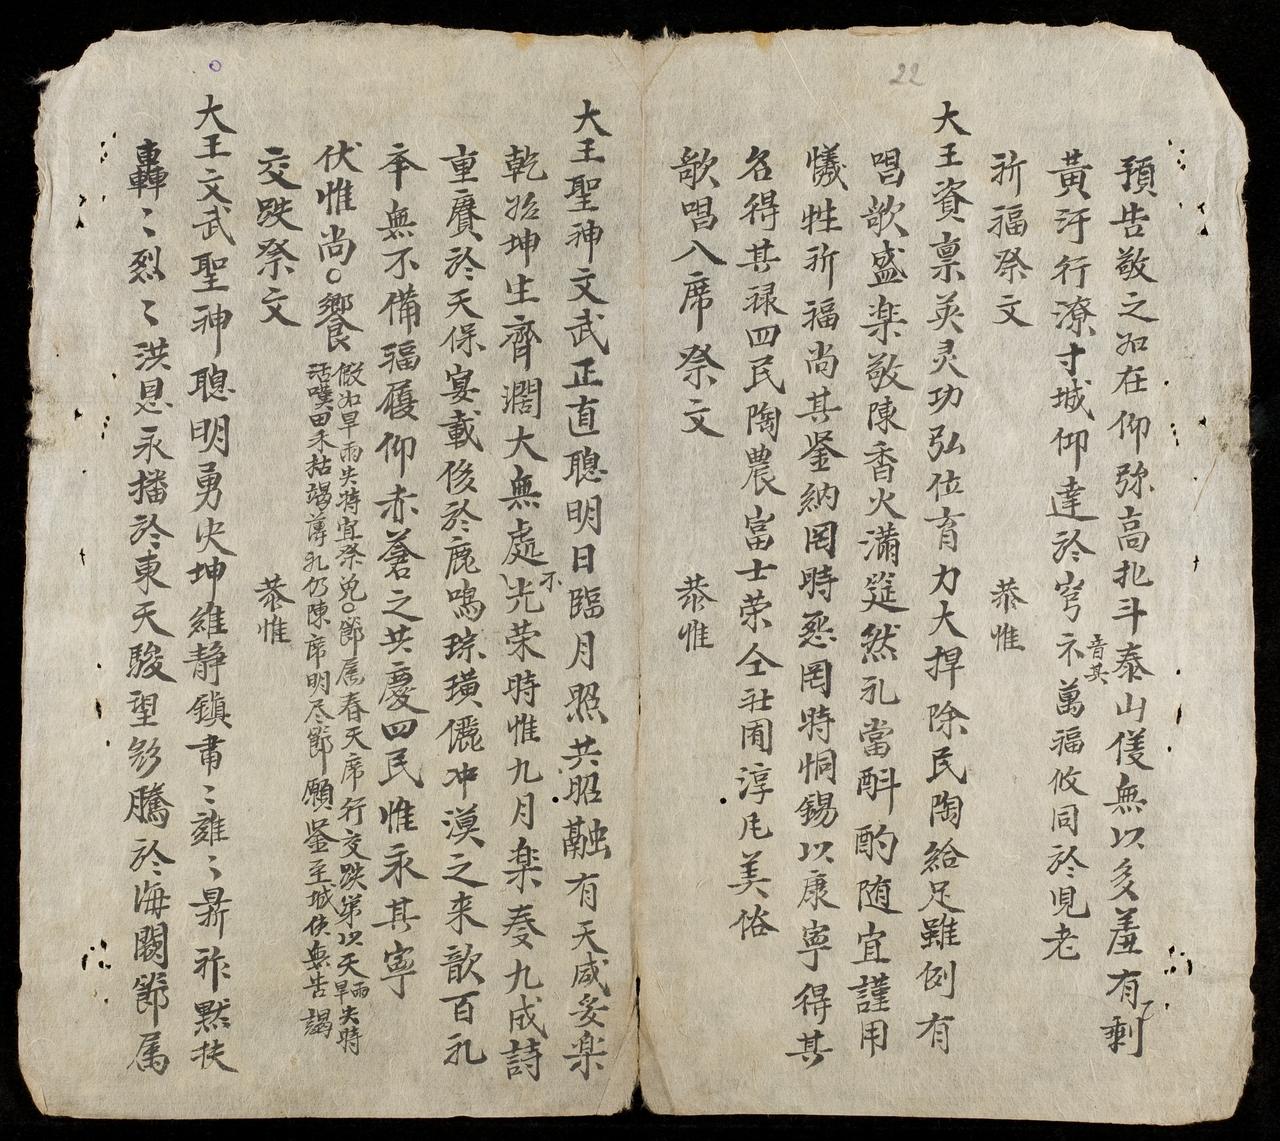 22
預告敬之如在仰弥高北斗泰山僅無以多羞有剩
黃汙行潦寸城仰達於穹示音其萬福攸同於児老
祈福祭文 恭惟
大王資禀英灵功弘位育力大捍除民陶給足雖例有
唱歌盛楽敬陳香火满筵然礼當斟酌随宜謹用
犧牲祈福尚其鉴納罔時怨罔時恫錫以康寧得其
名得其禄四民陶農富士荣仝社囿淳厖美俗
歌唱入席祭文 恭惟
大王聖神文武正直聰明日臨月照共昭融有天威妥楽
乾始坤生齊濶大無處不光荣時惟九月楽奏九成詩
重賡於天保宴載俊於鹿鳴琮璜儷冲漠之来歆百礼
夲無不備福履仰赤蒼之共慶四民惟永其寧
伏惟尚○饗
假如旱雨失時宜祭兌○節属春天席行交跌第以天旱雨失時
活嘆田禾枯竭薄礼仍陳席明尽節願鉴至城俠無苦謁
交跌祭文 恭惟
大王文武聖神聰明勇决坤維静鎮肅〻雝〻鼎祚黙扶
轟〻烈〻洪恩永播於東天駿望弥騰於海闕節属